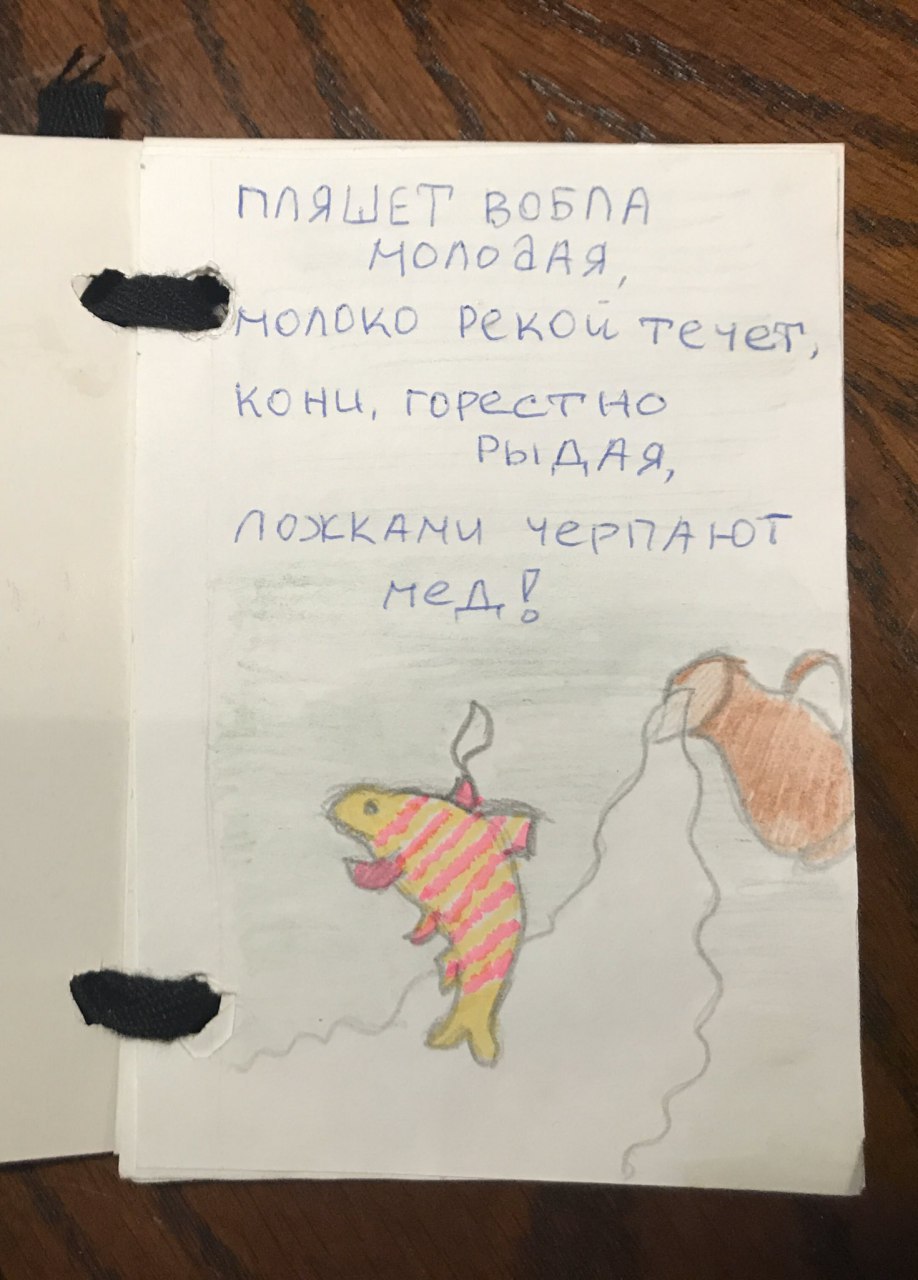 ПЛЯШЕТ ВОБЛА
МОЛОДАЯ,
МОЛОКО РЕКОЙ ТЕЧЕТ,
КОНИ, ГОРЕСТНО
РЫДАЯ,
ЛОЖКАМИ ЧЕРПАЮТ
МЕД!